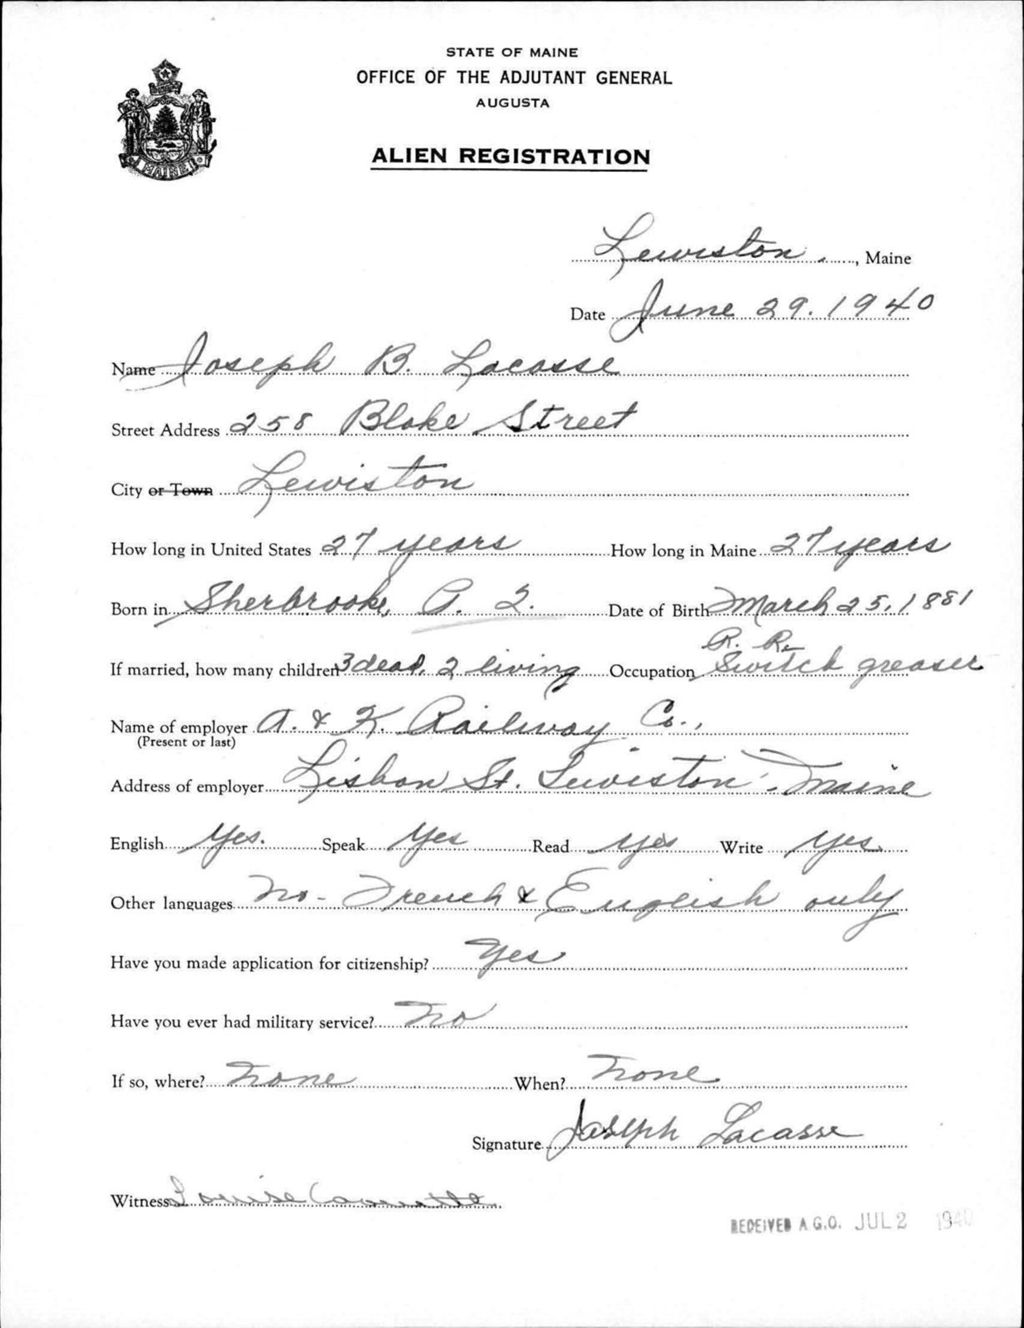 STATE OF MAINE
OFFICE OF THE ADJUTANT GENERAL
AUGUSTA
ALIEN REGISTRATION
MAINE
Lewiston, Maine
Date June 29. 1940
Name Joseph B. Lacasse
Street Address 258 Blake Street
City or Town Lewiston
How long in United States 27 years How long in Maine 27 years
Born in Sherbrooke, P. Q. Date of Birth March 25, 1881
If married, how many children 3 dead, 2 living Occupation R. R. Switch greaser
Name of employer A. & K. Railway Co.,
(Present or last)
Address of employer Lisbon St. Lewiston, Maine
English Yes. Speak Yes Read Yes Write Yes
Other languages No - French & English only
Have you made application for citizenship? Yes
Have you ever had military service? No
If so, where? None When? None
Signature Joseph Lacasse
Witness Louise
RECEIVED A.G.O. JUL 2 1940